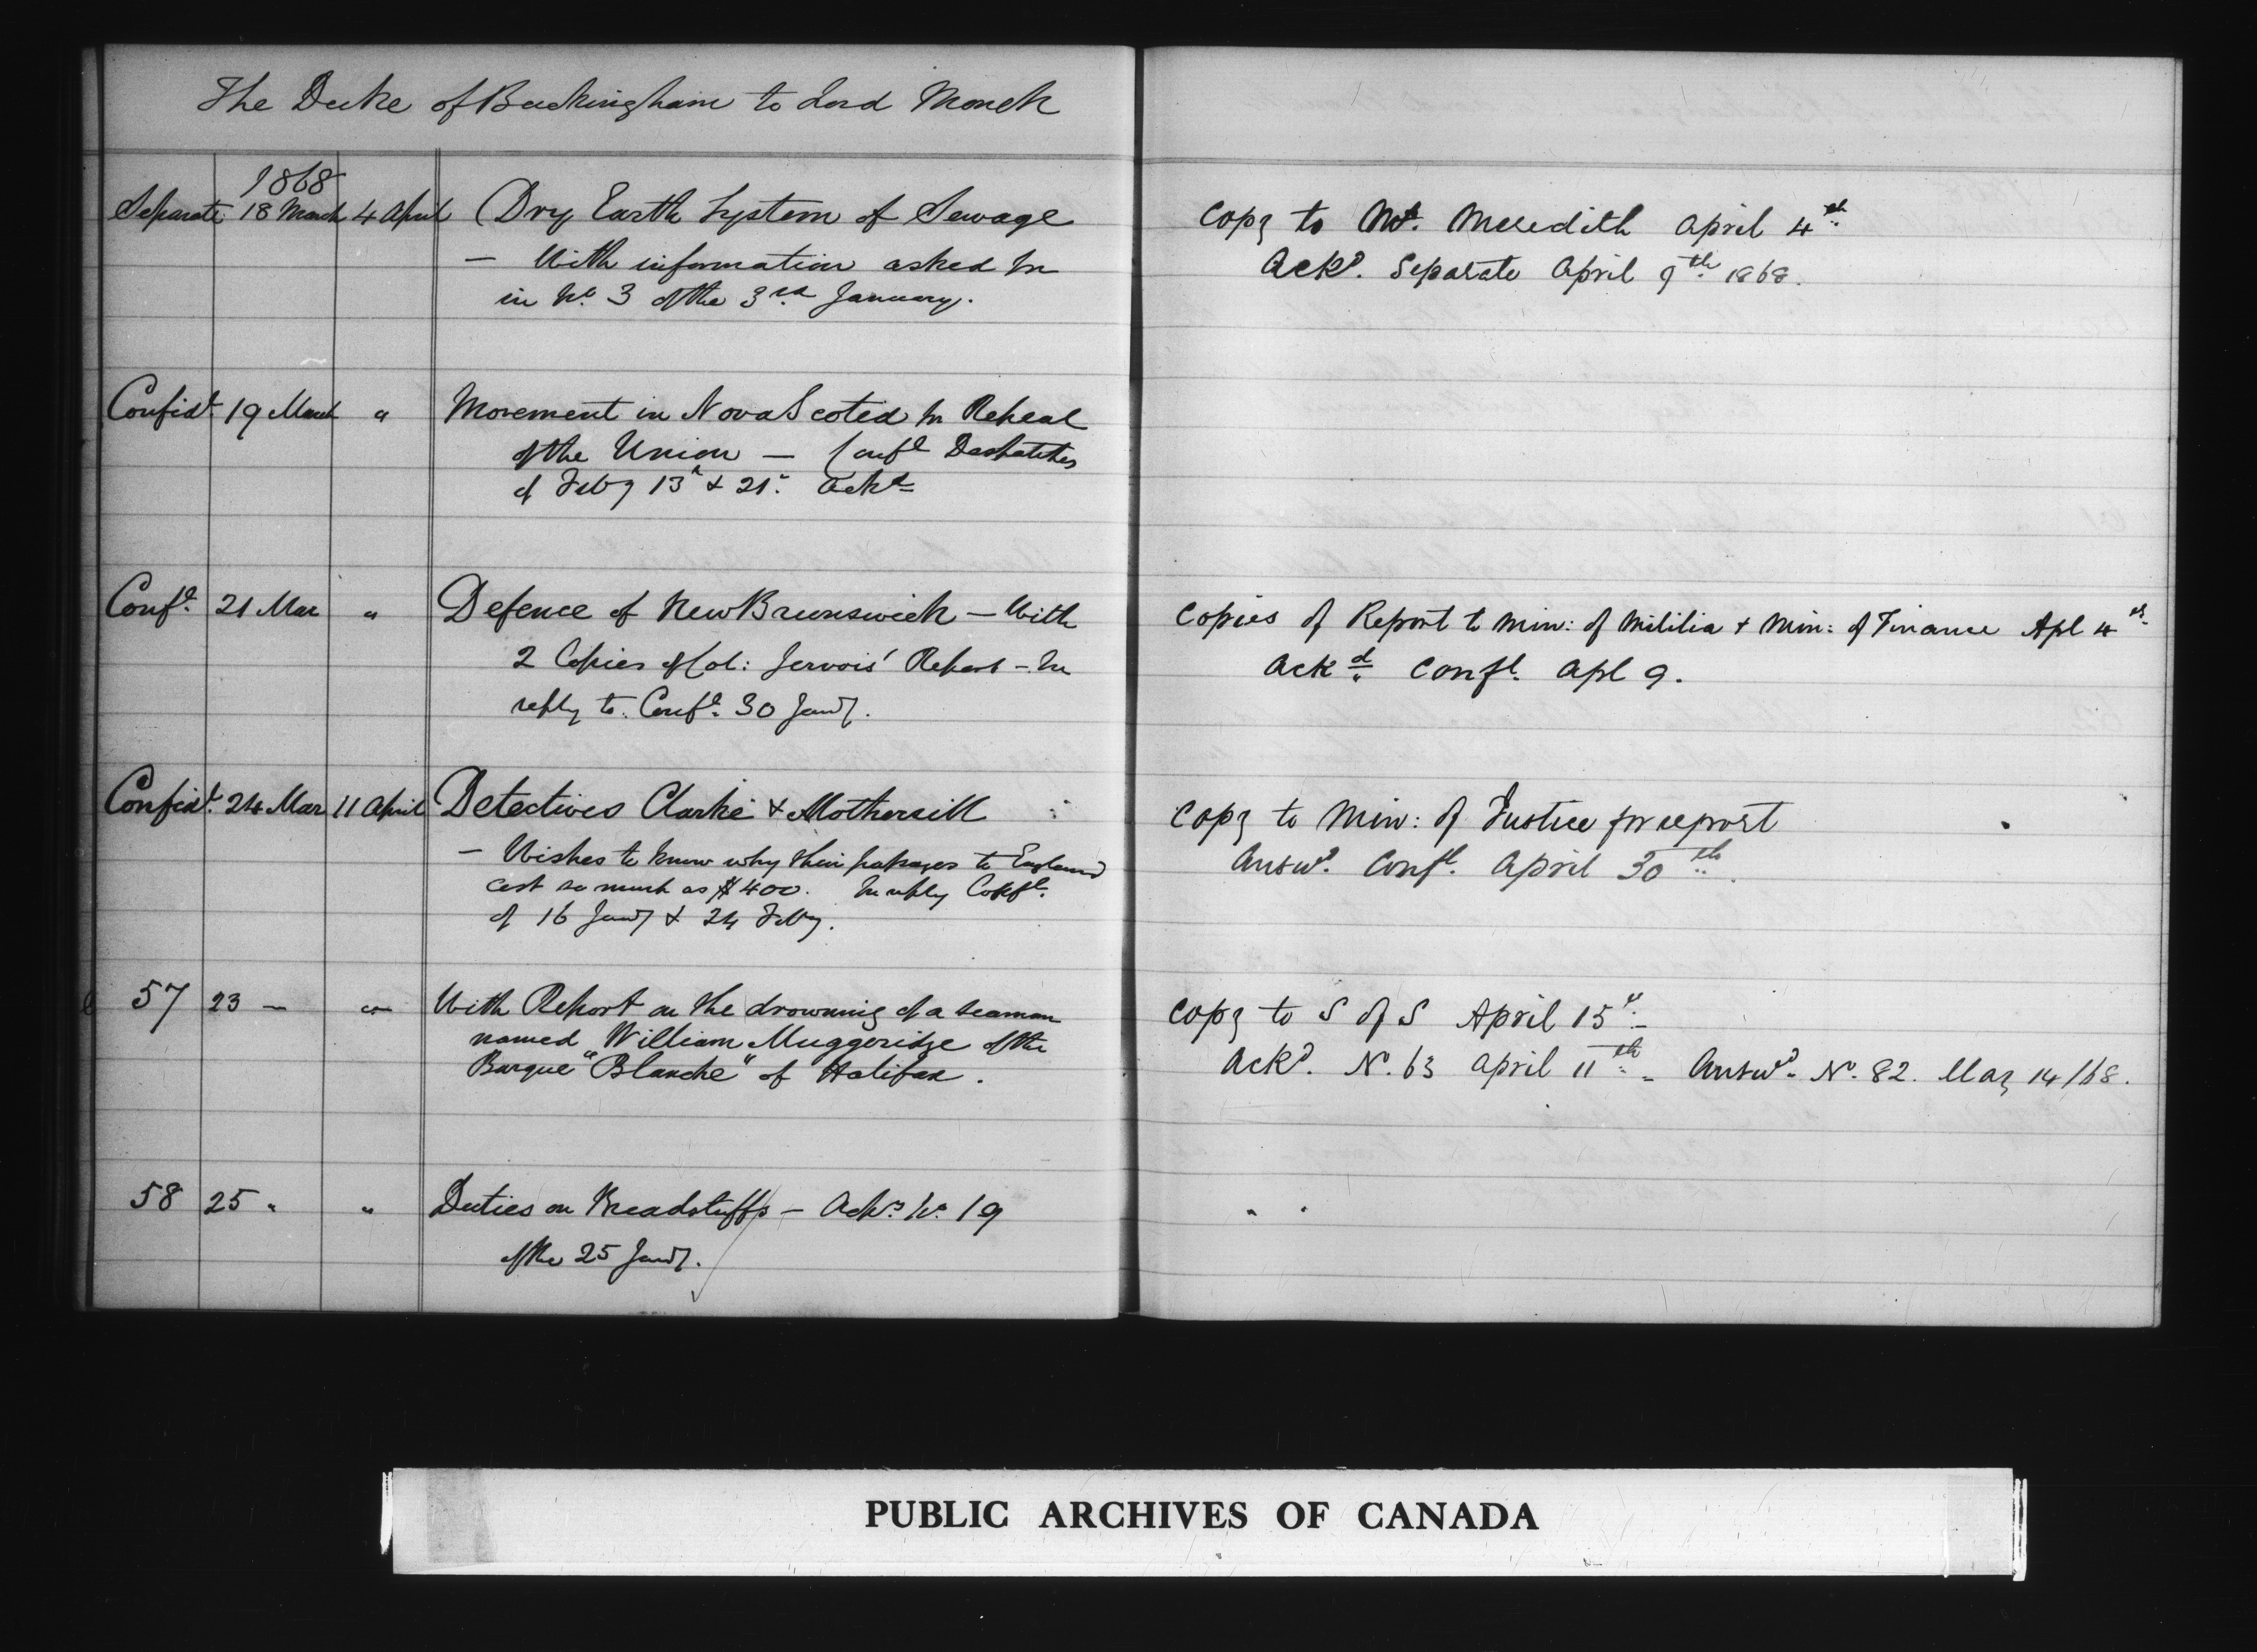 The Duke of Buckingham to Lord Monck
1868
Separate 18 March 4 April Dry Earth System of Sewage
— With information asked for
in No. 3 of the 3rd January.
Copy to Mr. Meredith April 4th
Ackd. Separate April 9th 1868.
Confidl. 19 March " Movement in Nova Scotia for Repeal
of the Union — Confl Despatches
of Feby 13th & 21st ackd
Confl. 21 Mar " Defence of New Brunswick — With
2 Copies of Col: Jervois' Report — In
reply to Confl. 30 Jany.
Copies of Report to Min: of Militia & Min: of Finance Apl 4th
Ackd Confl. Apl 9.
Confidl. 24 Mar 11 April Detectives Clarke & Mothersill
— Wishes to know why their passages to England
cost so much as $400. In reply Confl.
of 16 Jany & 24 Feby.
Copy to Min: of Justice for report
Answd. Confl. April 30th.
57 23 — " With Report on the drowning of a seaman
named William Muggeridge of the
Barque "Blanche" of Halifax.
Copy to S of S April 15th
Ackd. No. 63 April 11th — Answd. No. 82. May 14/68.
58 25 " " Duties on Breadstuffs — Ackg. No. 19
of the 25 Jany.
PUBLIC ARCHIVES OF CANADA